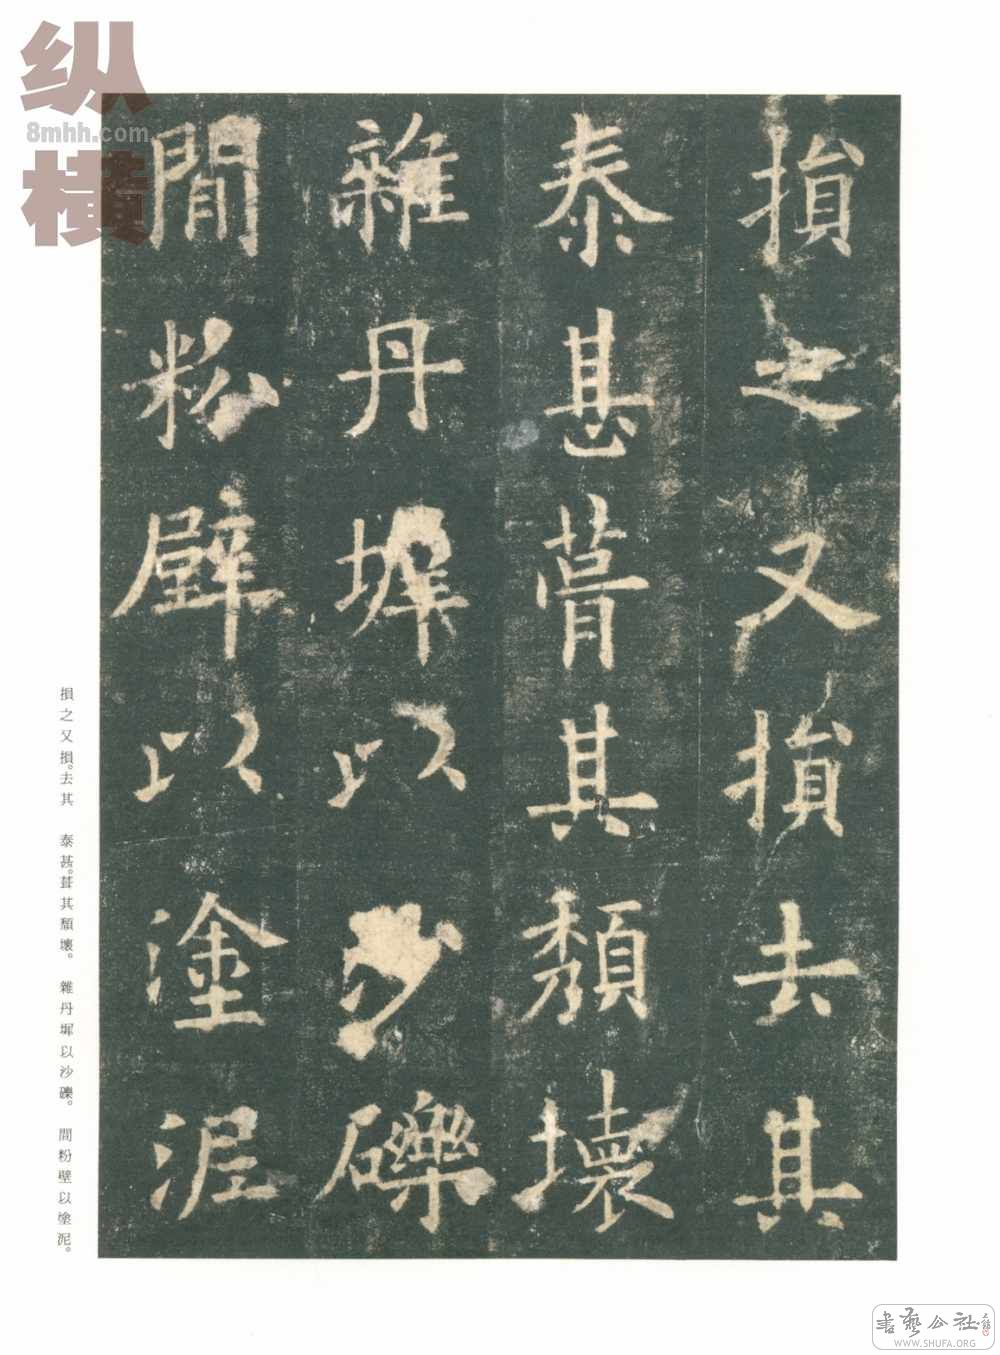 損之又損去其
泰甚葺其頹壞
雜丹墀以沙礫
間粉壁以塗泥
損之又損。去其 泰甚。葺其頹壞。 雜丹墀以沙礫。 間粉壁以塗泥。
纵横
8mhh.com
書藝公社
WWW.SHUFA.ORG